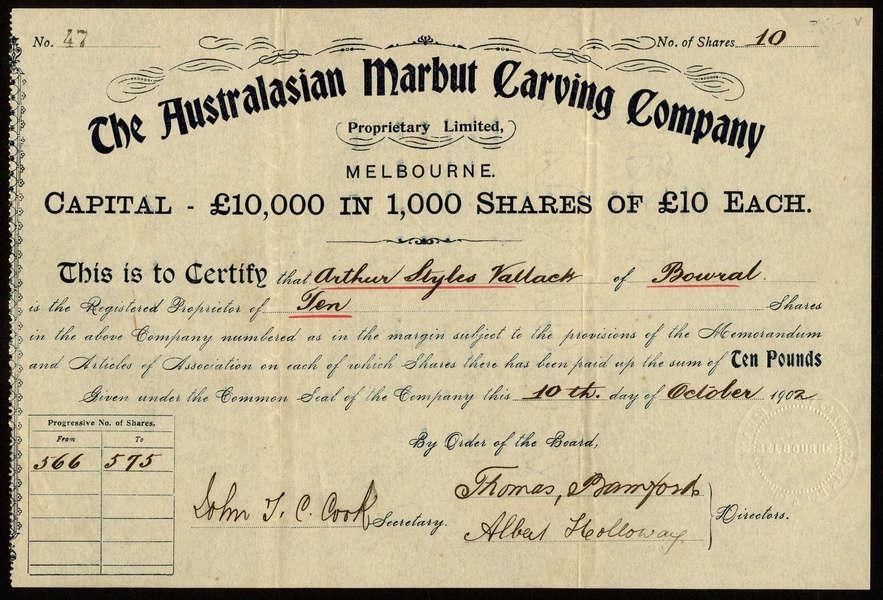 No. 47
No. of Shares 10
The Australasian Marbut Carving Company
Proprietary Limited,
MELBOURNE.
CAPITAL - £10,000 IN 1,000 SHARES OF £10 EACH.
This is to Certify that Arthur Styles Vallack of Bowral.
is the Registered Proprietor of Ten Shares
in the above Company numbered as in the margin subject to the provisions of the Memorandum
and Articles of Association on each of which Shares there has been paid up the sum of Ten Pounds
Given under the Common Seal of the Company this 10th. day of October 1902
Progressive No. of Shares.
From To
566 575
By Order of the Board,
John T. C. Cook Secretary.
Thomas, Bamford
Albert Holloway
Directors.
MELBOURNE